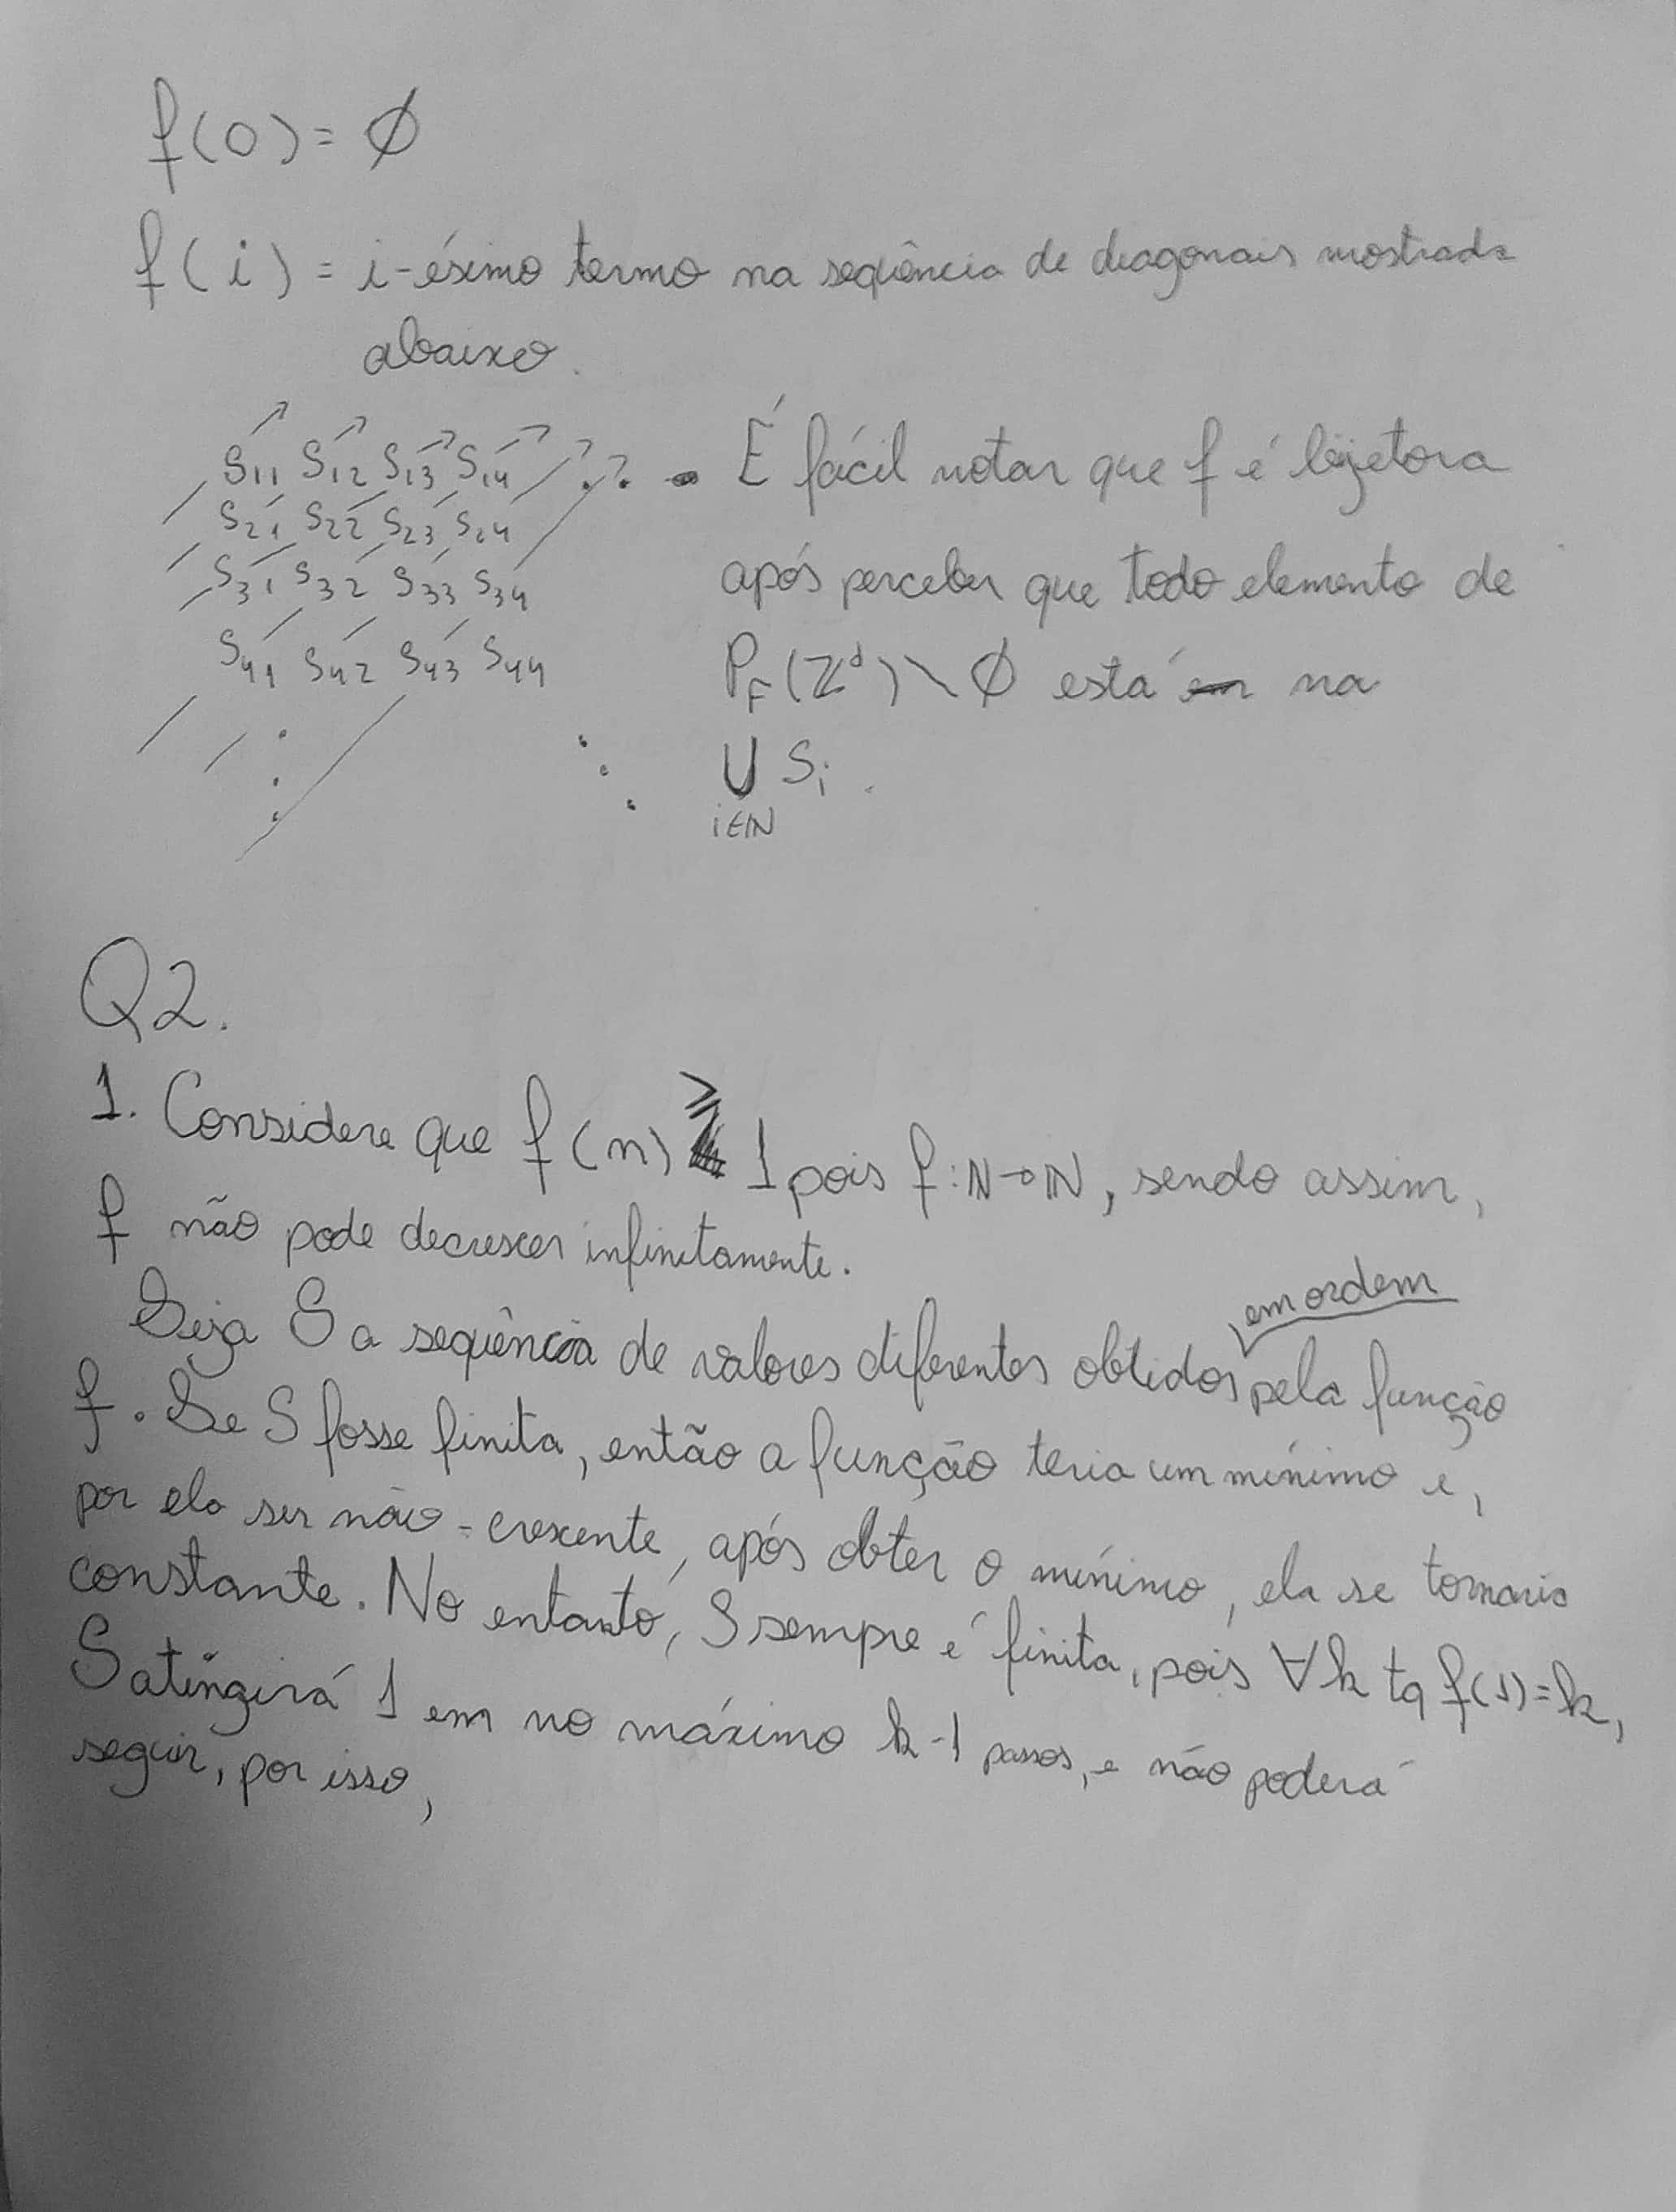 f(0) = ∅
f(i) = i-ésimo termo na seqüência de diagonais mostrada
abaixo.
S11 S12 S13 S14
S21 S22 S23 S24
S31 S32 S33 S34
S41 S42 S43 S44
É fácil notar que f é bijetora
após perceber que todo elemento de
P_F(ℤ^d) \ ∅ está na
∪ Si.
i∈ℕ
Q2.
1. Considere que f(n) ≥ 1 pois f: ℕ→ℕ, sendo assim,
f não pode decrescer infinitamente.
em ordem
Seja S a seqüência de valores diferentes obtidos pela função
f. Se S fosse finita, então a função teria um mínimo e,
por ela ser não-crescente, após obter o mínimo, ela se tornaria
constante. No entanto, S sempre é finita, pois ∀k tq f(1)=k,
S atingirá 1 em no máximo k-1 passos, e não poderá
seguir, por isso,